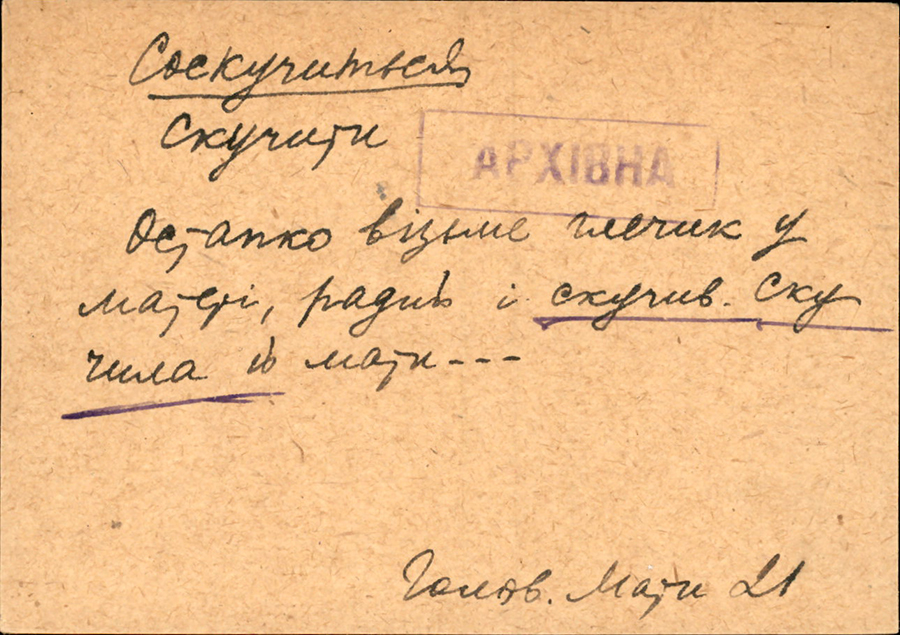 Соскучиться
скучити
АРХІВНА
Остапко візьме глечик у
матері, радий і скучив. Ску
чила й мати---
Голов. Мати 21